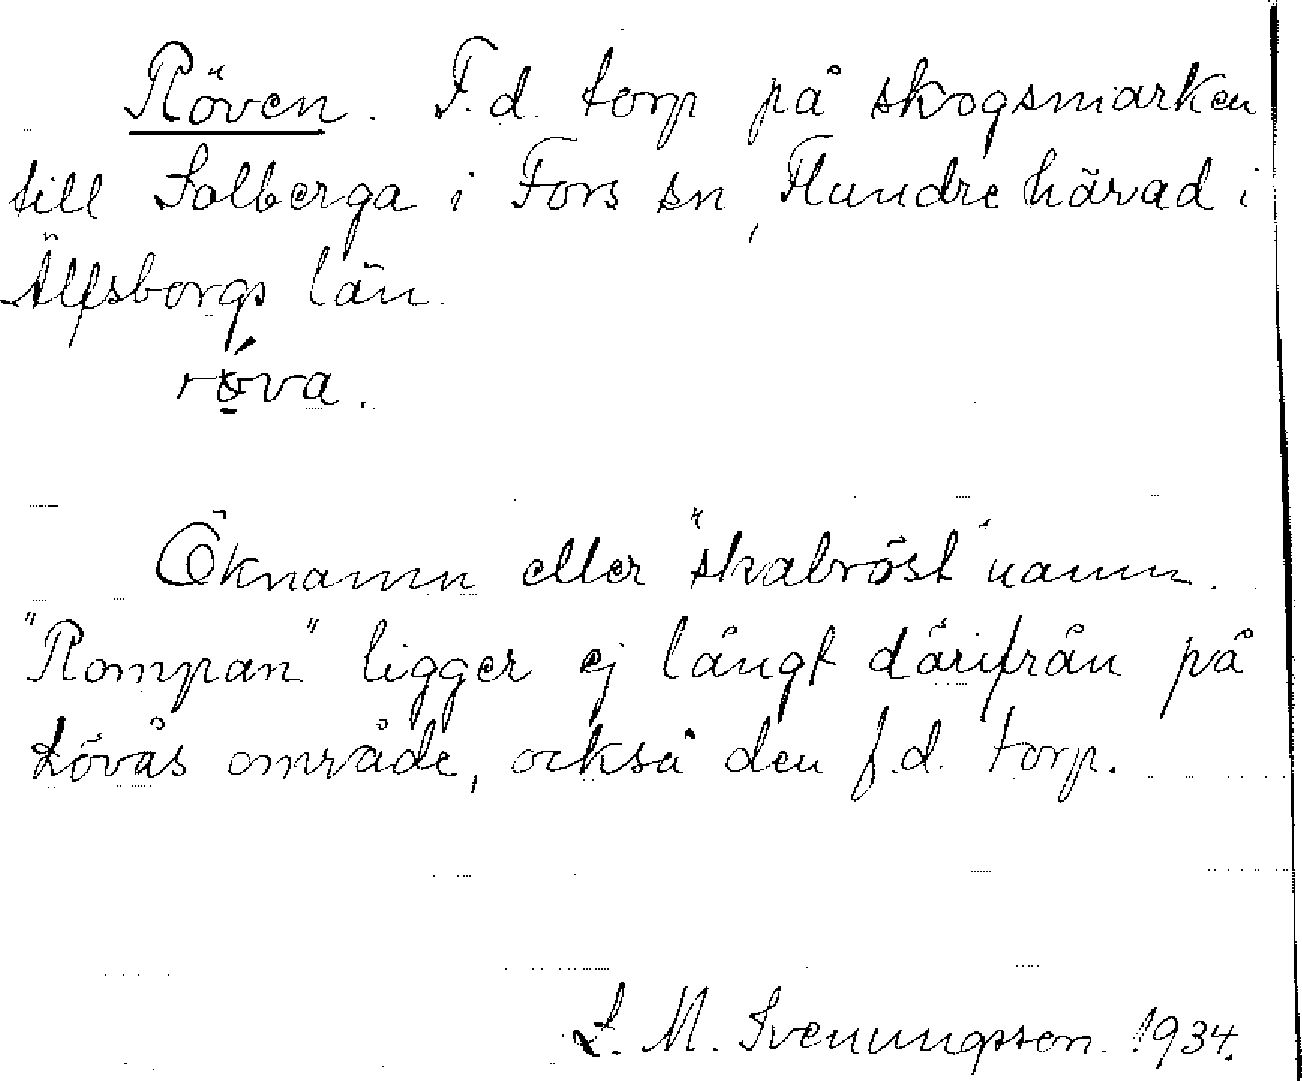 Röven. F.d. torp på skogsmarken
till Solberga i Fors sn, Flundre härad i
Älfsborgs län.
röva.
Öknamn eller "skabröst" namn.
"Rompan" ligger ej långt därifrån på
Lövås område, också den f.d. torp.
L. M. Svenungsson. 1934.